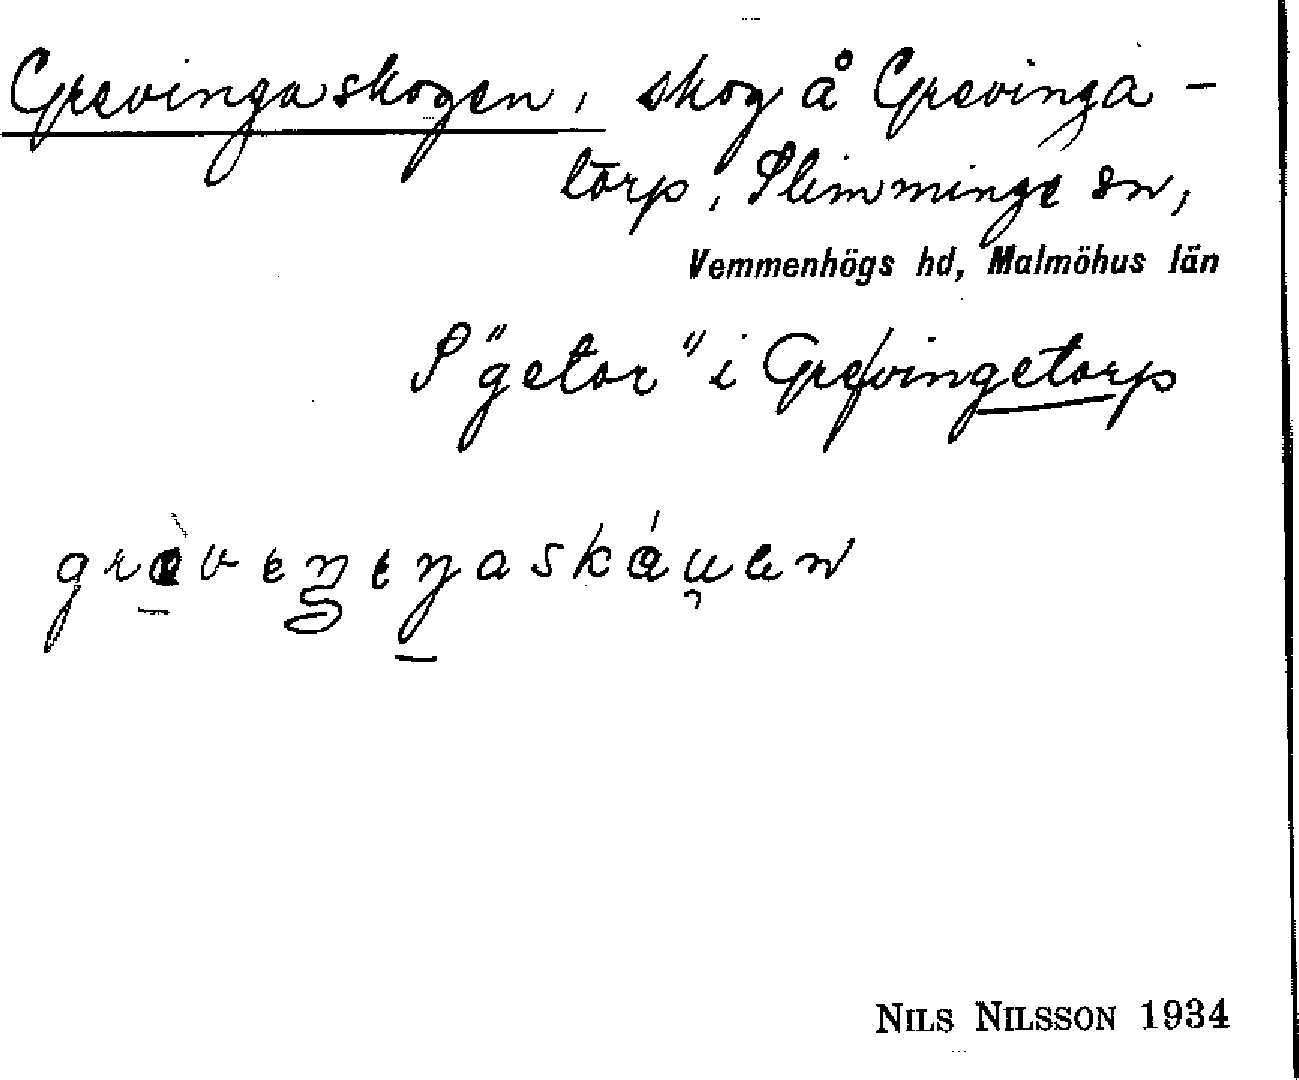 Grevingaskogen, skog å Grevinga-
torp, Slimminge sn,
Vemmenhögs hd, Malmöhus län
S "getor" i Grevingetorp
NILS NILSSON 1934